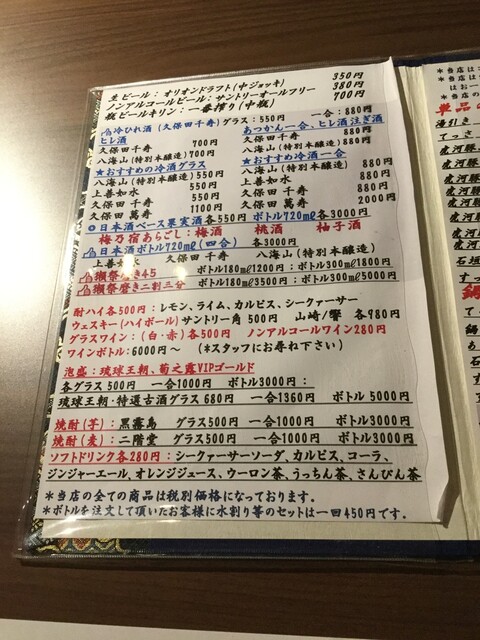 生ビール：オリオンドラフト(中ジョッキ) 350円
ノンアルコールビール：サントリーオールフリー 380円
瓶ビールキリン：一番搾り(中瓶) 700円
冷ひれ酒(久保田千寿)グラス：550円 一合：880円
ヒレ酒 あつかん一合、ヒレ酒注ぎ酒
久保田千寿 700円 久保田千寿 880円
八海山(特別本醸造) 700円 八海山(特別本醸造) 880円
★おすすめの冷酒グラス ★おすすめ冷酒一合
八海山(特別本醸造) 550円 八海山(特別本醸造) 880円
上善如水 550円 上善如水 880円
久保田千寿 550円 久保田千寿 880円
久保田萬寿 1100円 久保田 萬寿 2000円
日本酒ベース果実酒各550円 ボトル720㎖各3000円
梅乃宿あらごし：梅酒 桃酒 柚子酒
日本酒ボトル720㎖(四合) 各3000円
上善如水 久保田千寿 八海山(特別本醸造)
獺祭磨き45 ボトル180㎖1200円：ボトル300㎖1800円
獺祭磨き二割三分 ボトル180㎖3500円：ボトル300㎖5000円
酎ハイ各500円：レモン、ライム、カルピス、シークァーサー
ウェスキー(ハイボール)サントリー角 500円 山崎/響 各980円
グラスワイン：(白・赤)各500円 ノンアルコールワイン280円
ワインボトル：6000円～ (*スタッフにお尋ね下さい)
泡盛：琉球王朝、菊之露VIPゴールド
各グラス 500円 一合1000円 ボトル3000円：
琉球王朝・特選古酒グラス 680円 一合1360円 ボトル 5000円
焼酎(芋)：黒霧島 グラス500円 一合1000円 ボトル3000円
焼酎(麦)：二階堂 グラス500円 一合1000円 ボトル3000円
ソフトドリンク各280円：シークァーサーソーダ、カルピス、コーラ、
ジンジャーエール、オレンジジュース、ウーロン茶、うっちん茶、さんぴん茶
＊当店の全ての商品は税別価格になっております。
＊ボトルを注文して頂いたお客様に水割り等のセットは一回450円です。
＊当店は
単品
湯引き
てっさ